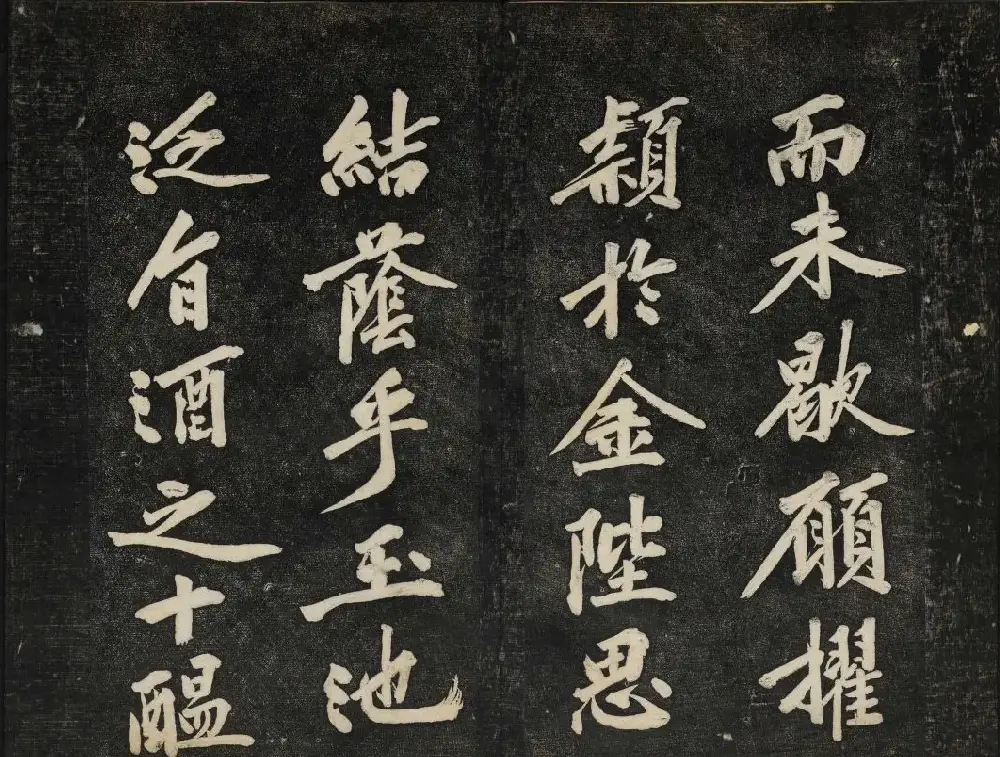 而未歇願擢
穎於金陛思
結蔭乎玉池
泛旨酒之十醖